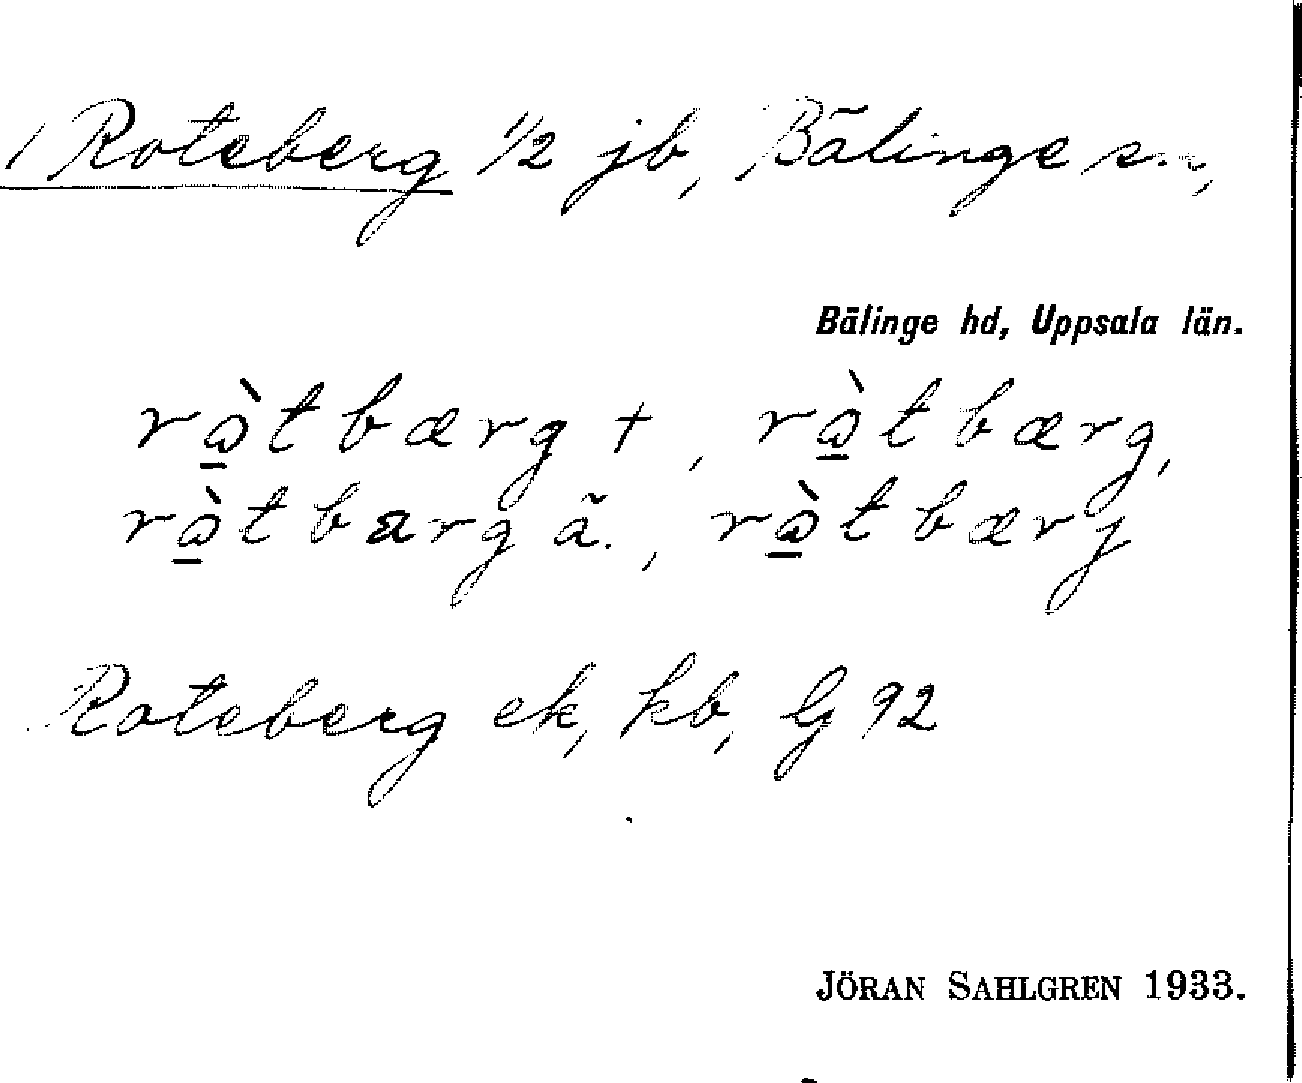 1 Roteberg 1/2 jb, Bälinge sn,
Bälinge hd, Uppsala län.
rὼ̲tbærg +, rὼ̲tbærg,
rὼ̲tbarg ä., rὼ̲tbærj
Roteberg ek, kb, G 92
JÖRAN SAHLGREN 1933.